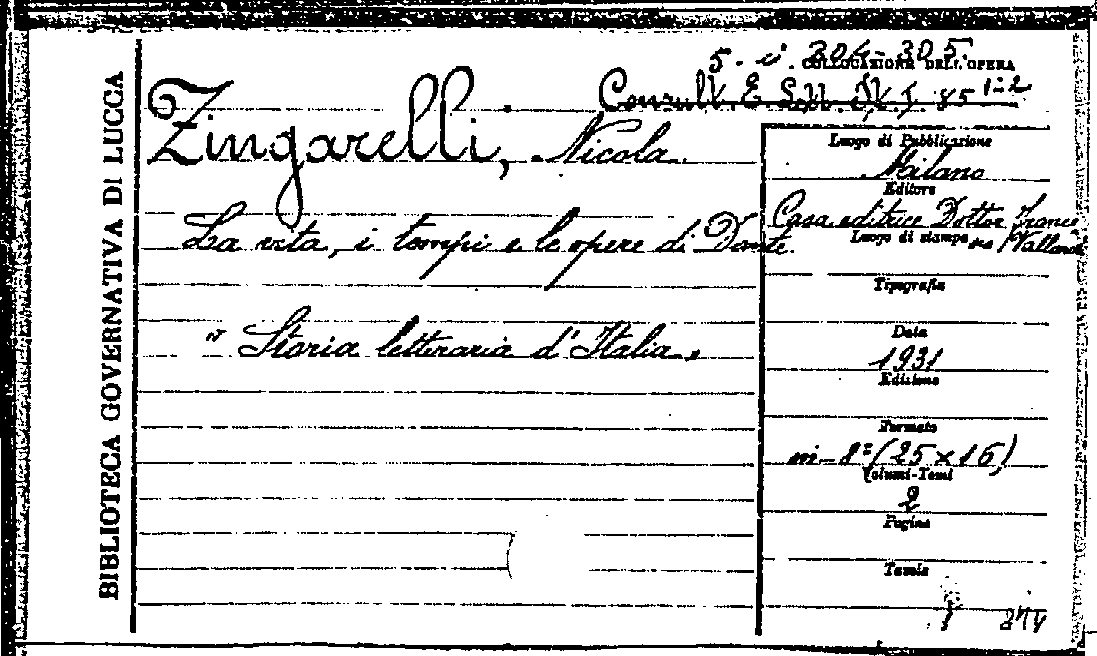 BIBLIOTECA GOVERNATIVA DI LUCCA
5. ii. 304-305.
COLLOCAZIONE DELL'OPERA
Consult. E 85 1-2
Zingarelli, Nicola
La vita, i tempi e le opere di Dante.
"Storia letteraria d'Italia"
Luogo di Pubblicazione
Milano
Editore
Casa editrice Dottor
Luogo di stampa
Vallardi
Tipografia
Data
1931
Edizione
Formato
in-8º (25×16)
Volumi-Tomi
2
Pagine
Tavole